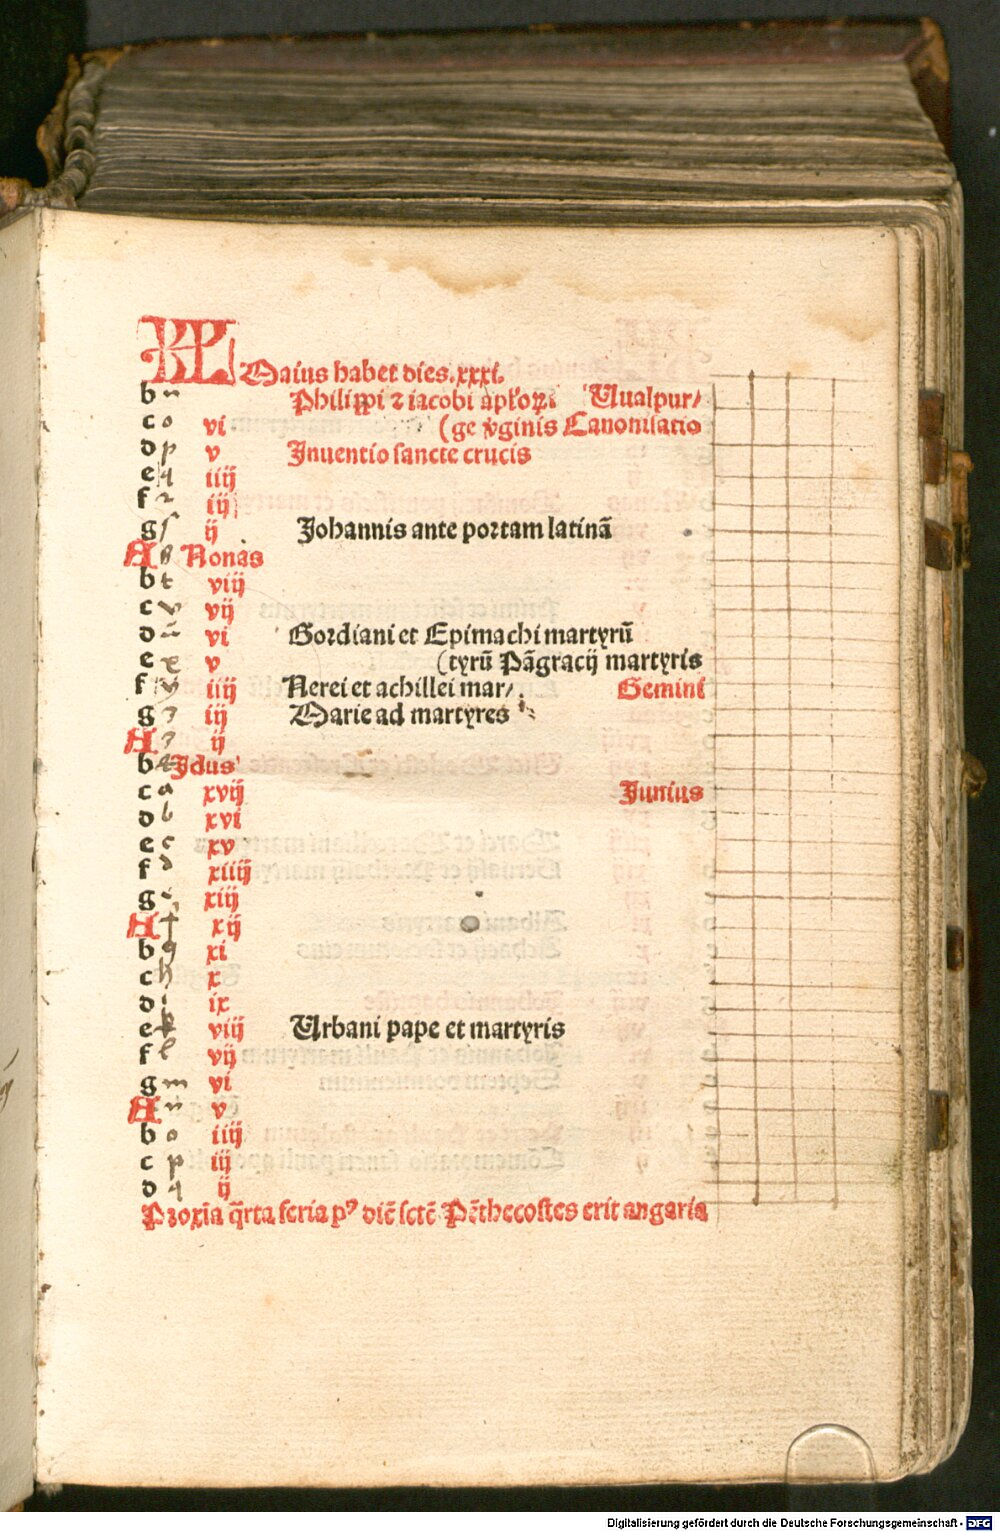 KL Maius habet dies.xxxi.
b n Philippi ⁊ iacobi apłoꝝ. Uualpur/
c o vi (ge v̄ginis Canonisatio
d p v Inuentio sancte crucis
e q iiij
f r iij
g s ij Johannis ante portam latinā
A Nonas
b t viij
c v vij
d vi Gordiani et Epimachi martyrū
e x v (tyrū Pāgracij martyris
f y iiij Nerei et achillei mar/ Gemini
g iij Marie ad martyres
A ij
b Jdus
c a xvij Junius
d b xvi
e c xv
f d xiiij
g e xiij
A f xij
b g xi
c h x
d i ix
e k viij Urbani pape et martyris
f l vij
g m vi
A n v
b o iiij
c p iij
d q ij
Proxīa q̄rta feria pꝰ diē sctē Pēthecostes erit angaria
Digitalisierung gefördert durch die Deutsche Forschungsgemeinschaft - DFG